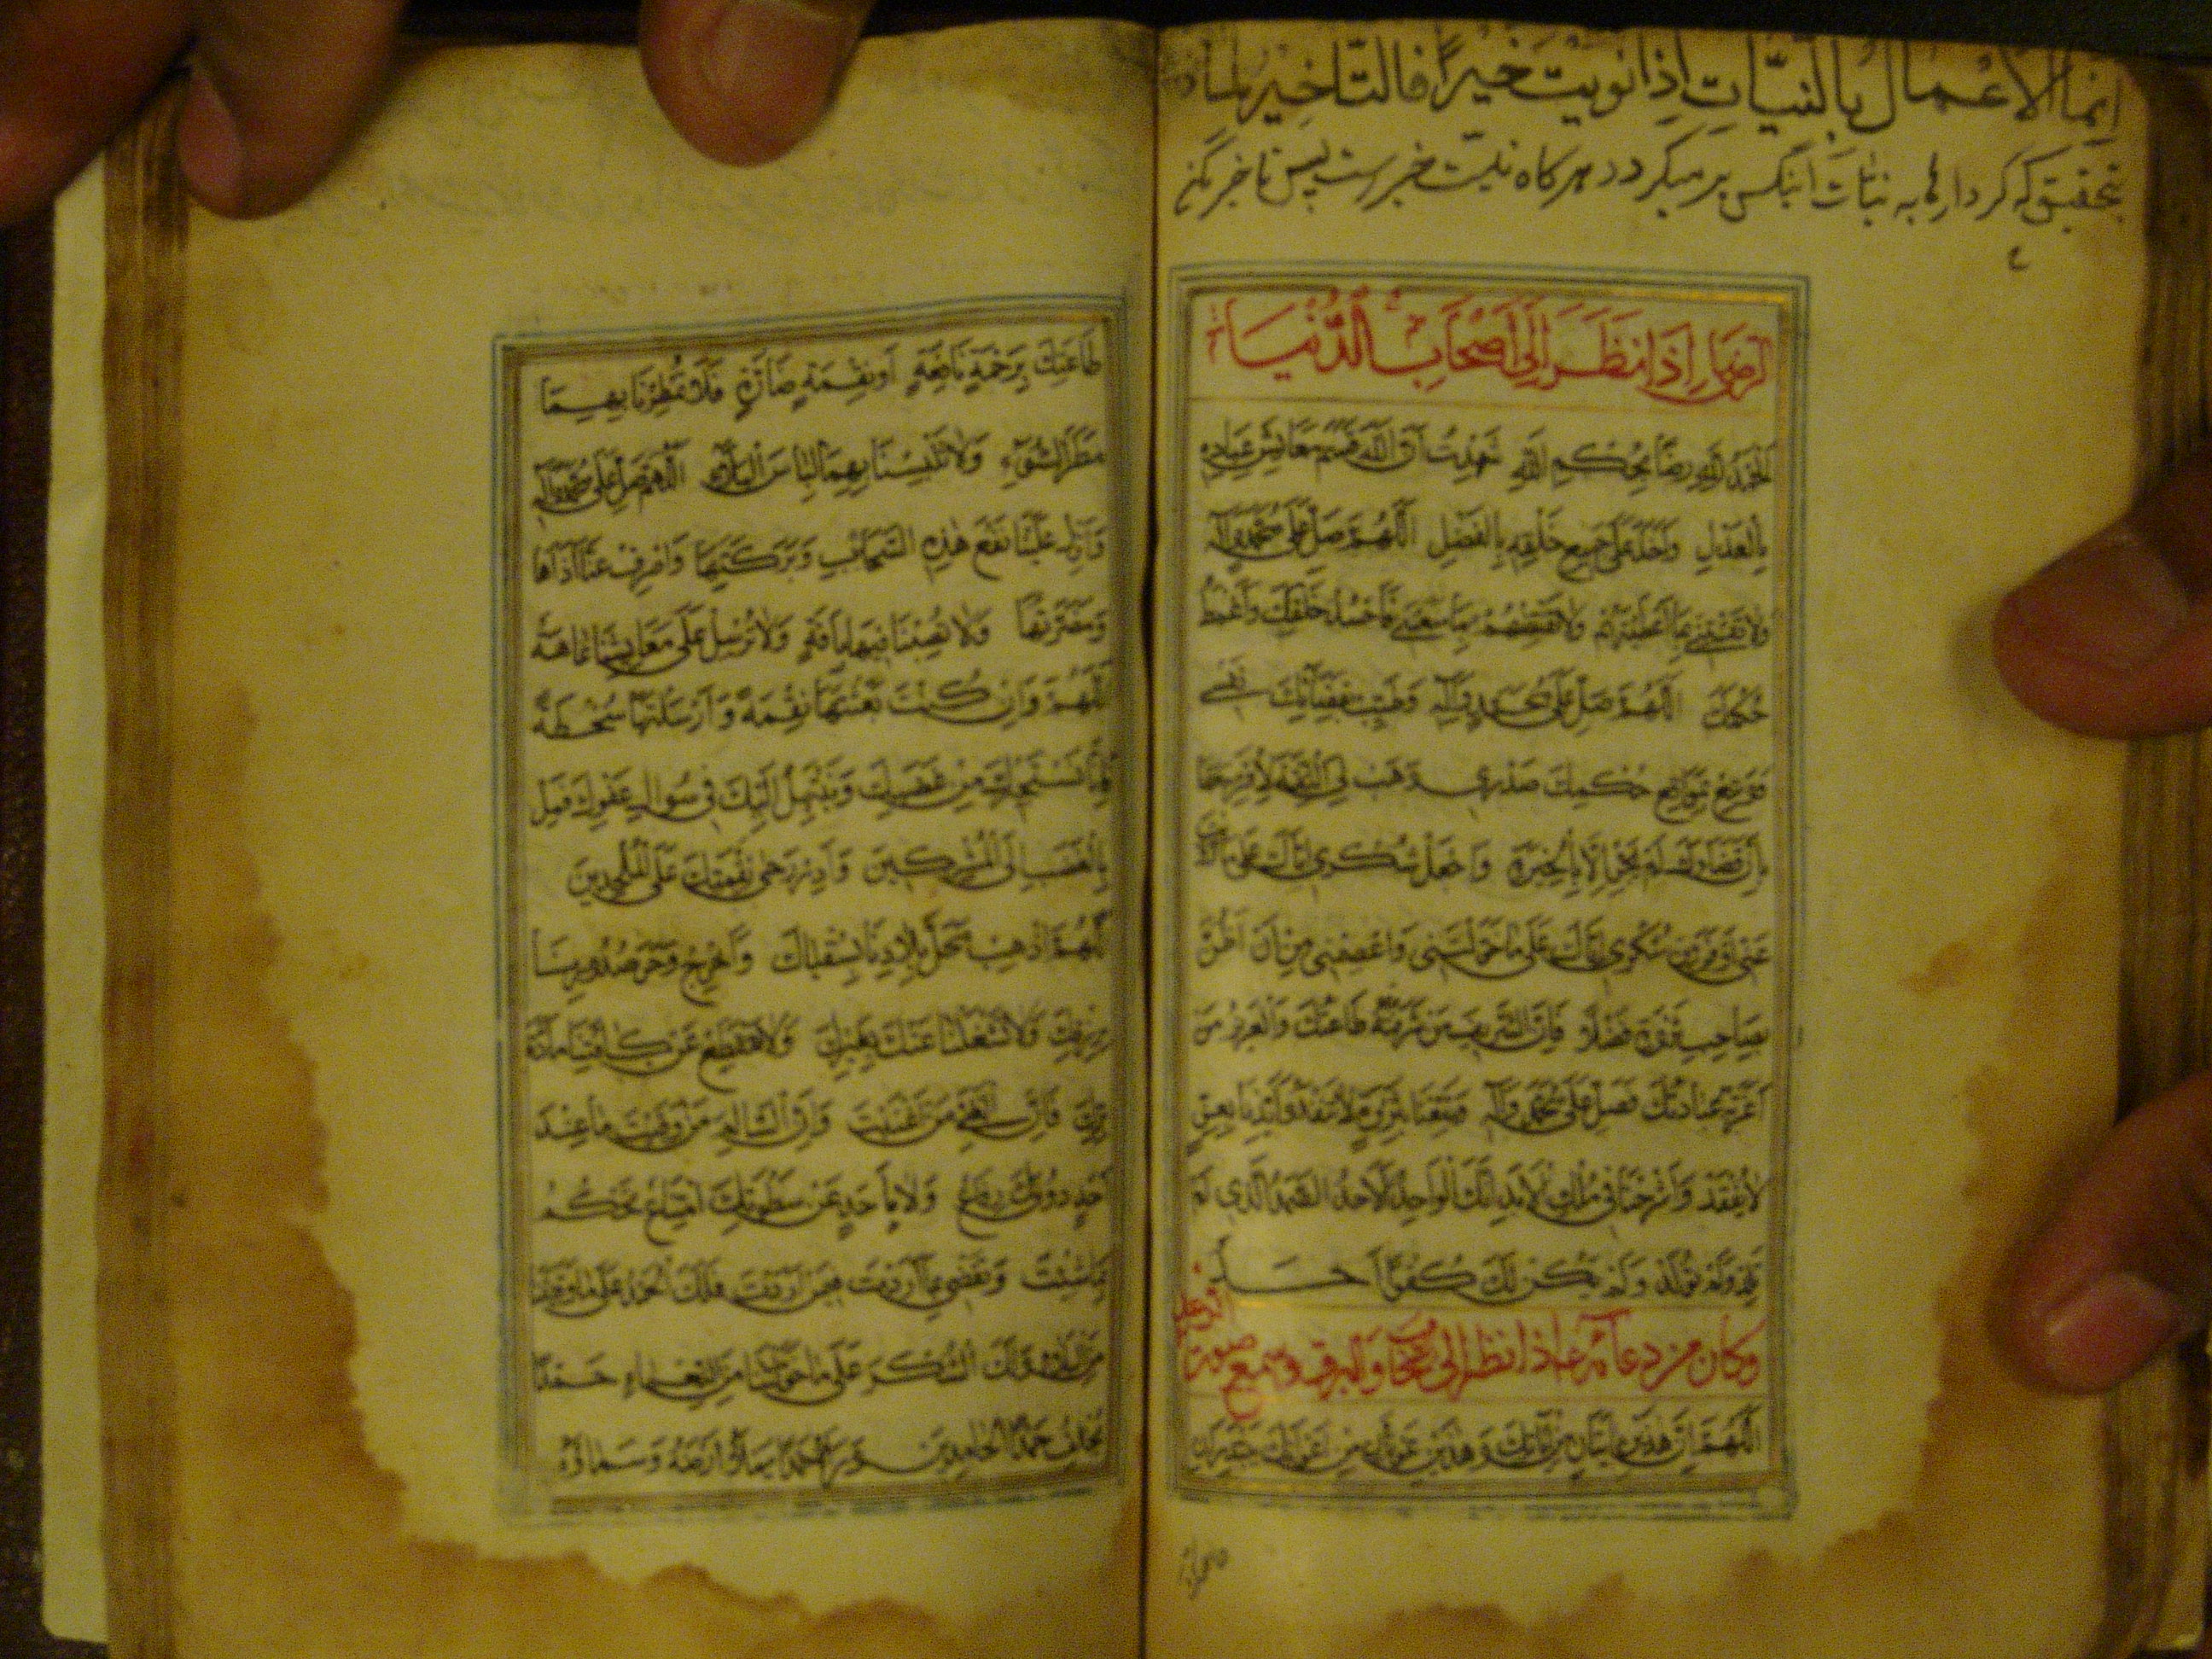 إنما الأعمال بالنيات إذا نويت خيرا فالتأخير لماذا
بتحقیق که کردارها به نیات آنکس برمیگردد هرکاه نیت خیرست پس تاخیر مکن
الرضا إذا نظر إلى أصحاب الدنيا
الحمد لله رضا بحكم الله شهدت أن الله قسم معايش عباده
بالعدل وأخذ على جميع خلقه بالفضل اللهم صل على محمد وآله
ولا تفتني بما أعطيتهم ولا تفتنهم بما منعتني فأحسد خلقك وأغمط
حكمك اللهم صل على محمد وآله وطيب بقضائك نفسي
ووسع بمواقع حكمك صدري وهب لي الثقة لأقر معها
بأن قضاءك لم يجر إلا بالخيرة واجعل شكري لك على ما زويت
عني أوفر من شكري إياك على ما خولتني واعصمني من أن أظن
بصاحب ثروة فضلا فإن الشريف من شرفته طاعتك والعزيز من
أعزته عبادتك فصل على محمد وآله ومتعنا بثروة لا تنفد وأيدنا بعز
لا يفقد وأسرحنا في ملك الأبد إنك الواحد الأحد الصمد الذي لم
تلد ولم تولد ولم يكن لك كفوا أحد
وكان من دعائه ع إذا نظر إلى السحاب والبرق وسمع صوت الرعد
اللهم إن هذين آيتان من آياتك وهذين عونان من أعوانك يبتدران
طاعتك برحمة نافعة أو نقمة ضارة فلا تمطرنا بهما
مطر السوء ولا تلبسنا بهما لباس البلاء اللهم صل على محمد وآله
وأنزل علينا نفع هذه السحائب وبركتها واصرف عنا أذاها
ومضرتها ولا تصبنا فيها بآفة ولا ترسل على معايشنا عاهة
اللهم وإن كنت بعثتها نقمة وأرسلتها سخطة
فإنا نستجيرك من غضبك ونبتهل إليك في سؤال عفوك فمل
بالغضب إلى المشركين وأدر رحى نقمتك على الملحدين
اللهم أذهب محل بلادنا بسقياك وأخرج وحر صدورنا
برزقك ولا تشغلنا عنك بغيرك ولا تقطع عن كافتنا مادة
برك فإن الغني من أغنيت وإن السالم من وقيت ما عند
أحد دونك دفاع ولا بأحد عن سطوتك امتناع تحكم
بما شئت وتقضي بما أردت فيمن أردت فلك الحمد على ما وقيتنا
من البلاء ولك الشكر على ما خولتنا من النعماء حمدا
يخلف حمد الحامدين وراءه حمدا يملأ أرضه وسماءه